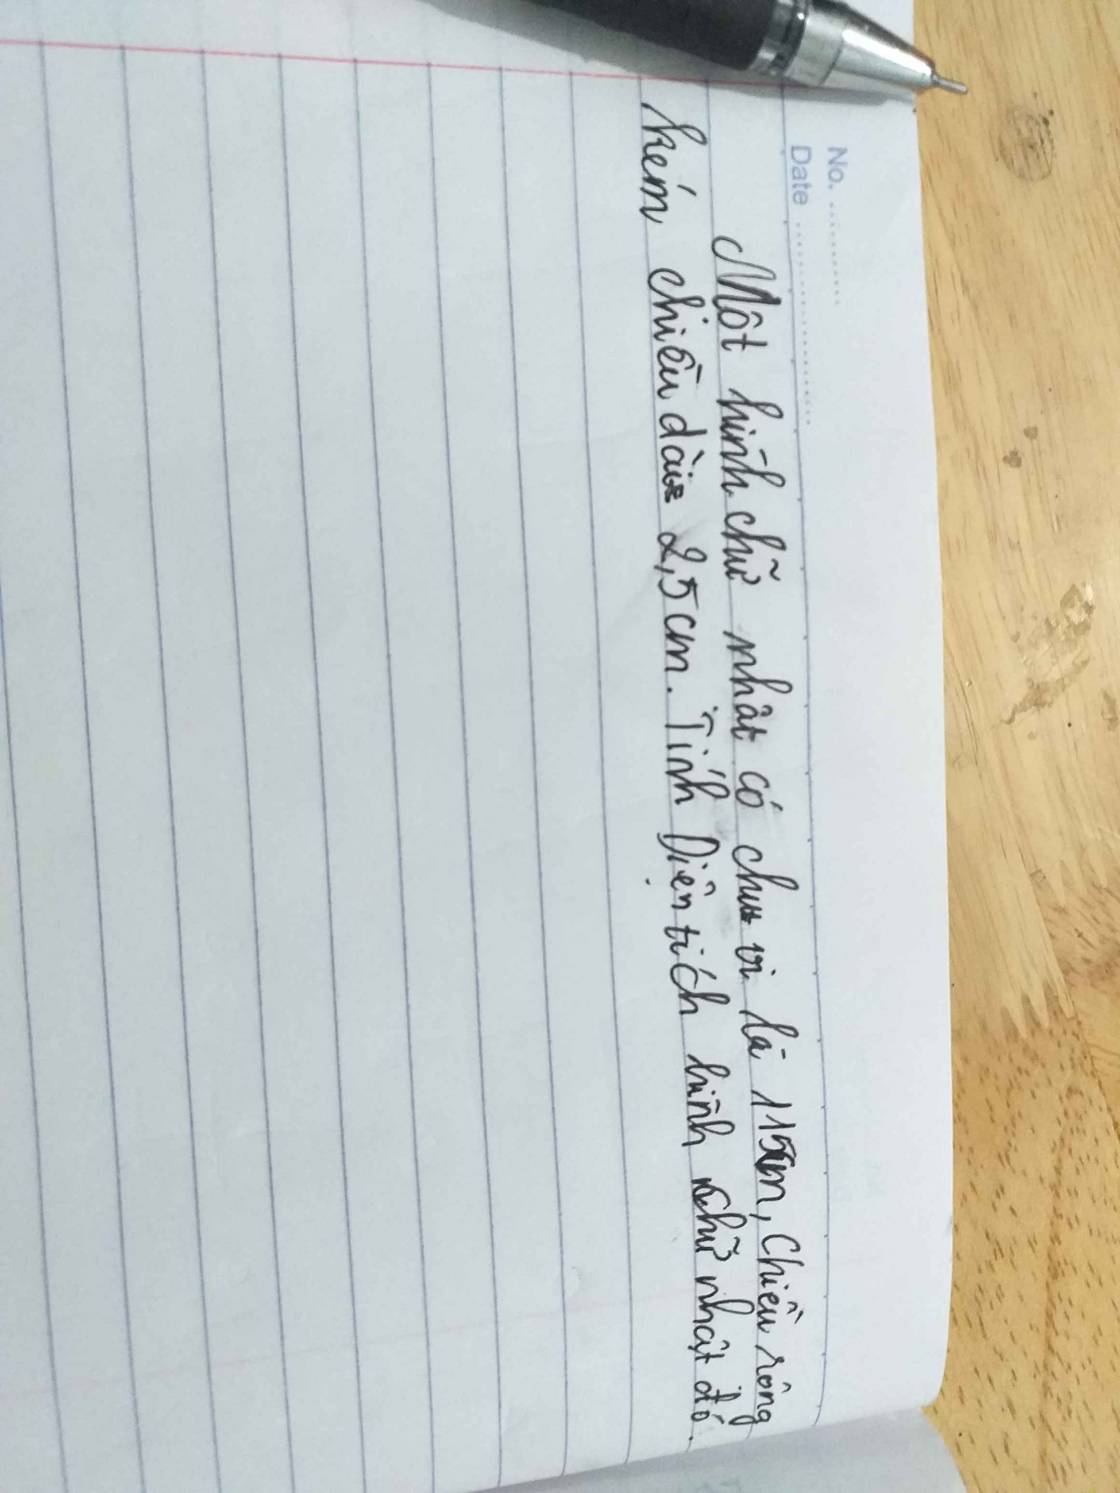 No. ............
Date ....................
Một hình chữ nhật có chu vi là 115cm, Chiều rông
kém chiều dài 2,5cm. Tính Diện tích hình chữ nhật đó.